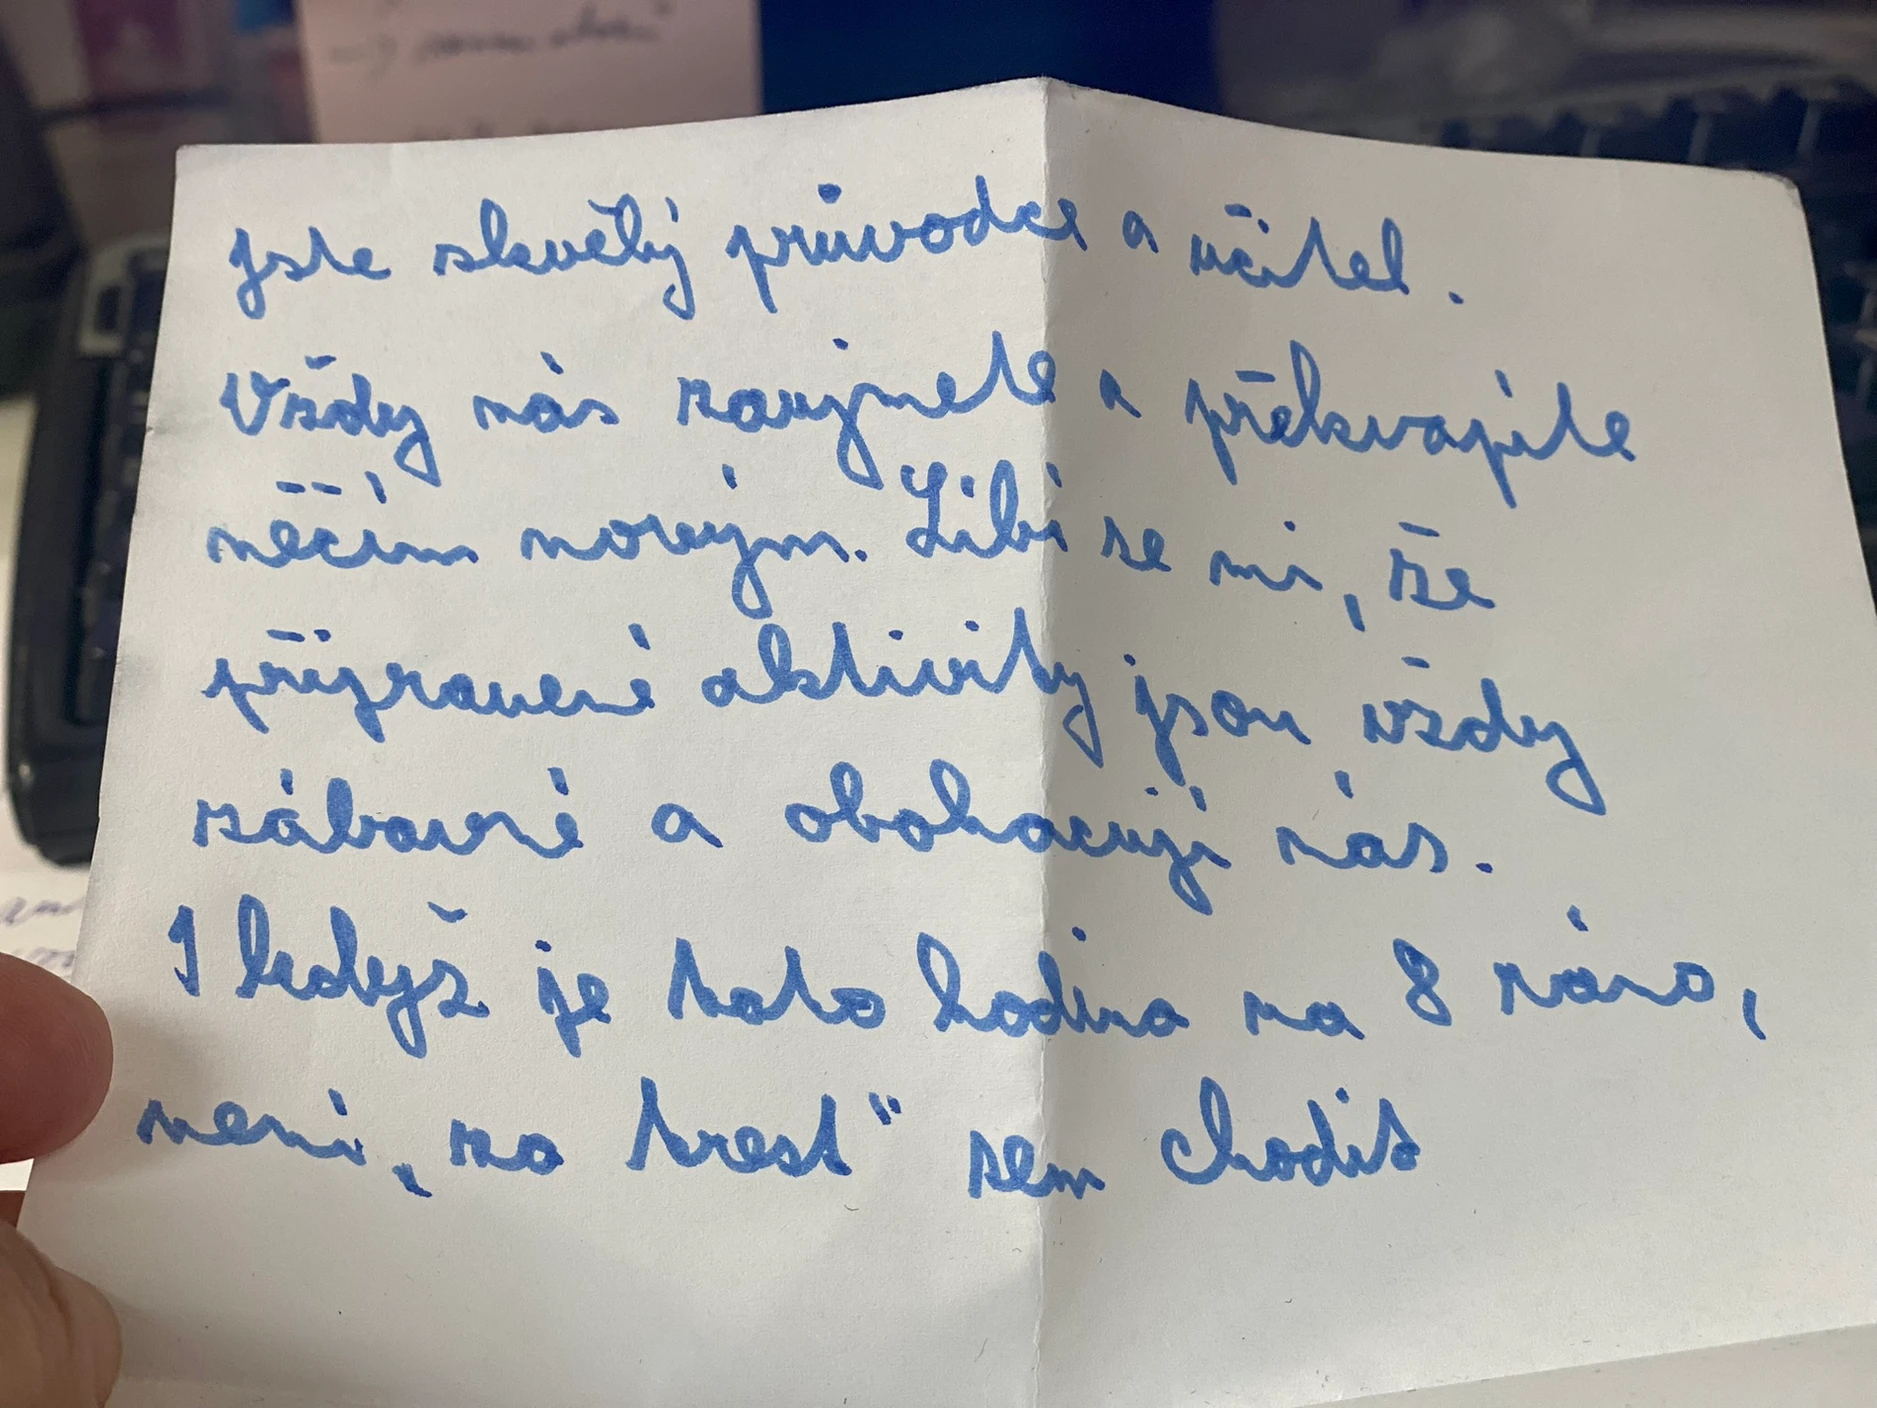 Jste skvělý průvodce a učitel.
Vždy nás zaujmete a překvapíte
něčím novým. Líbí se mi, že
připravené aktivity jsou vždy
zábavné a obohacují nás.
I když je tato hodina na 8 ráno,
není „za trest“ sem chodit